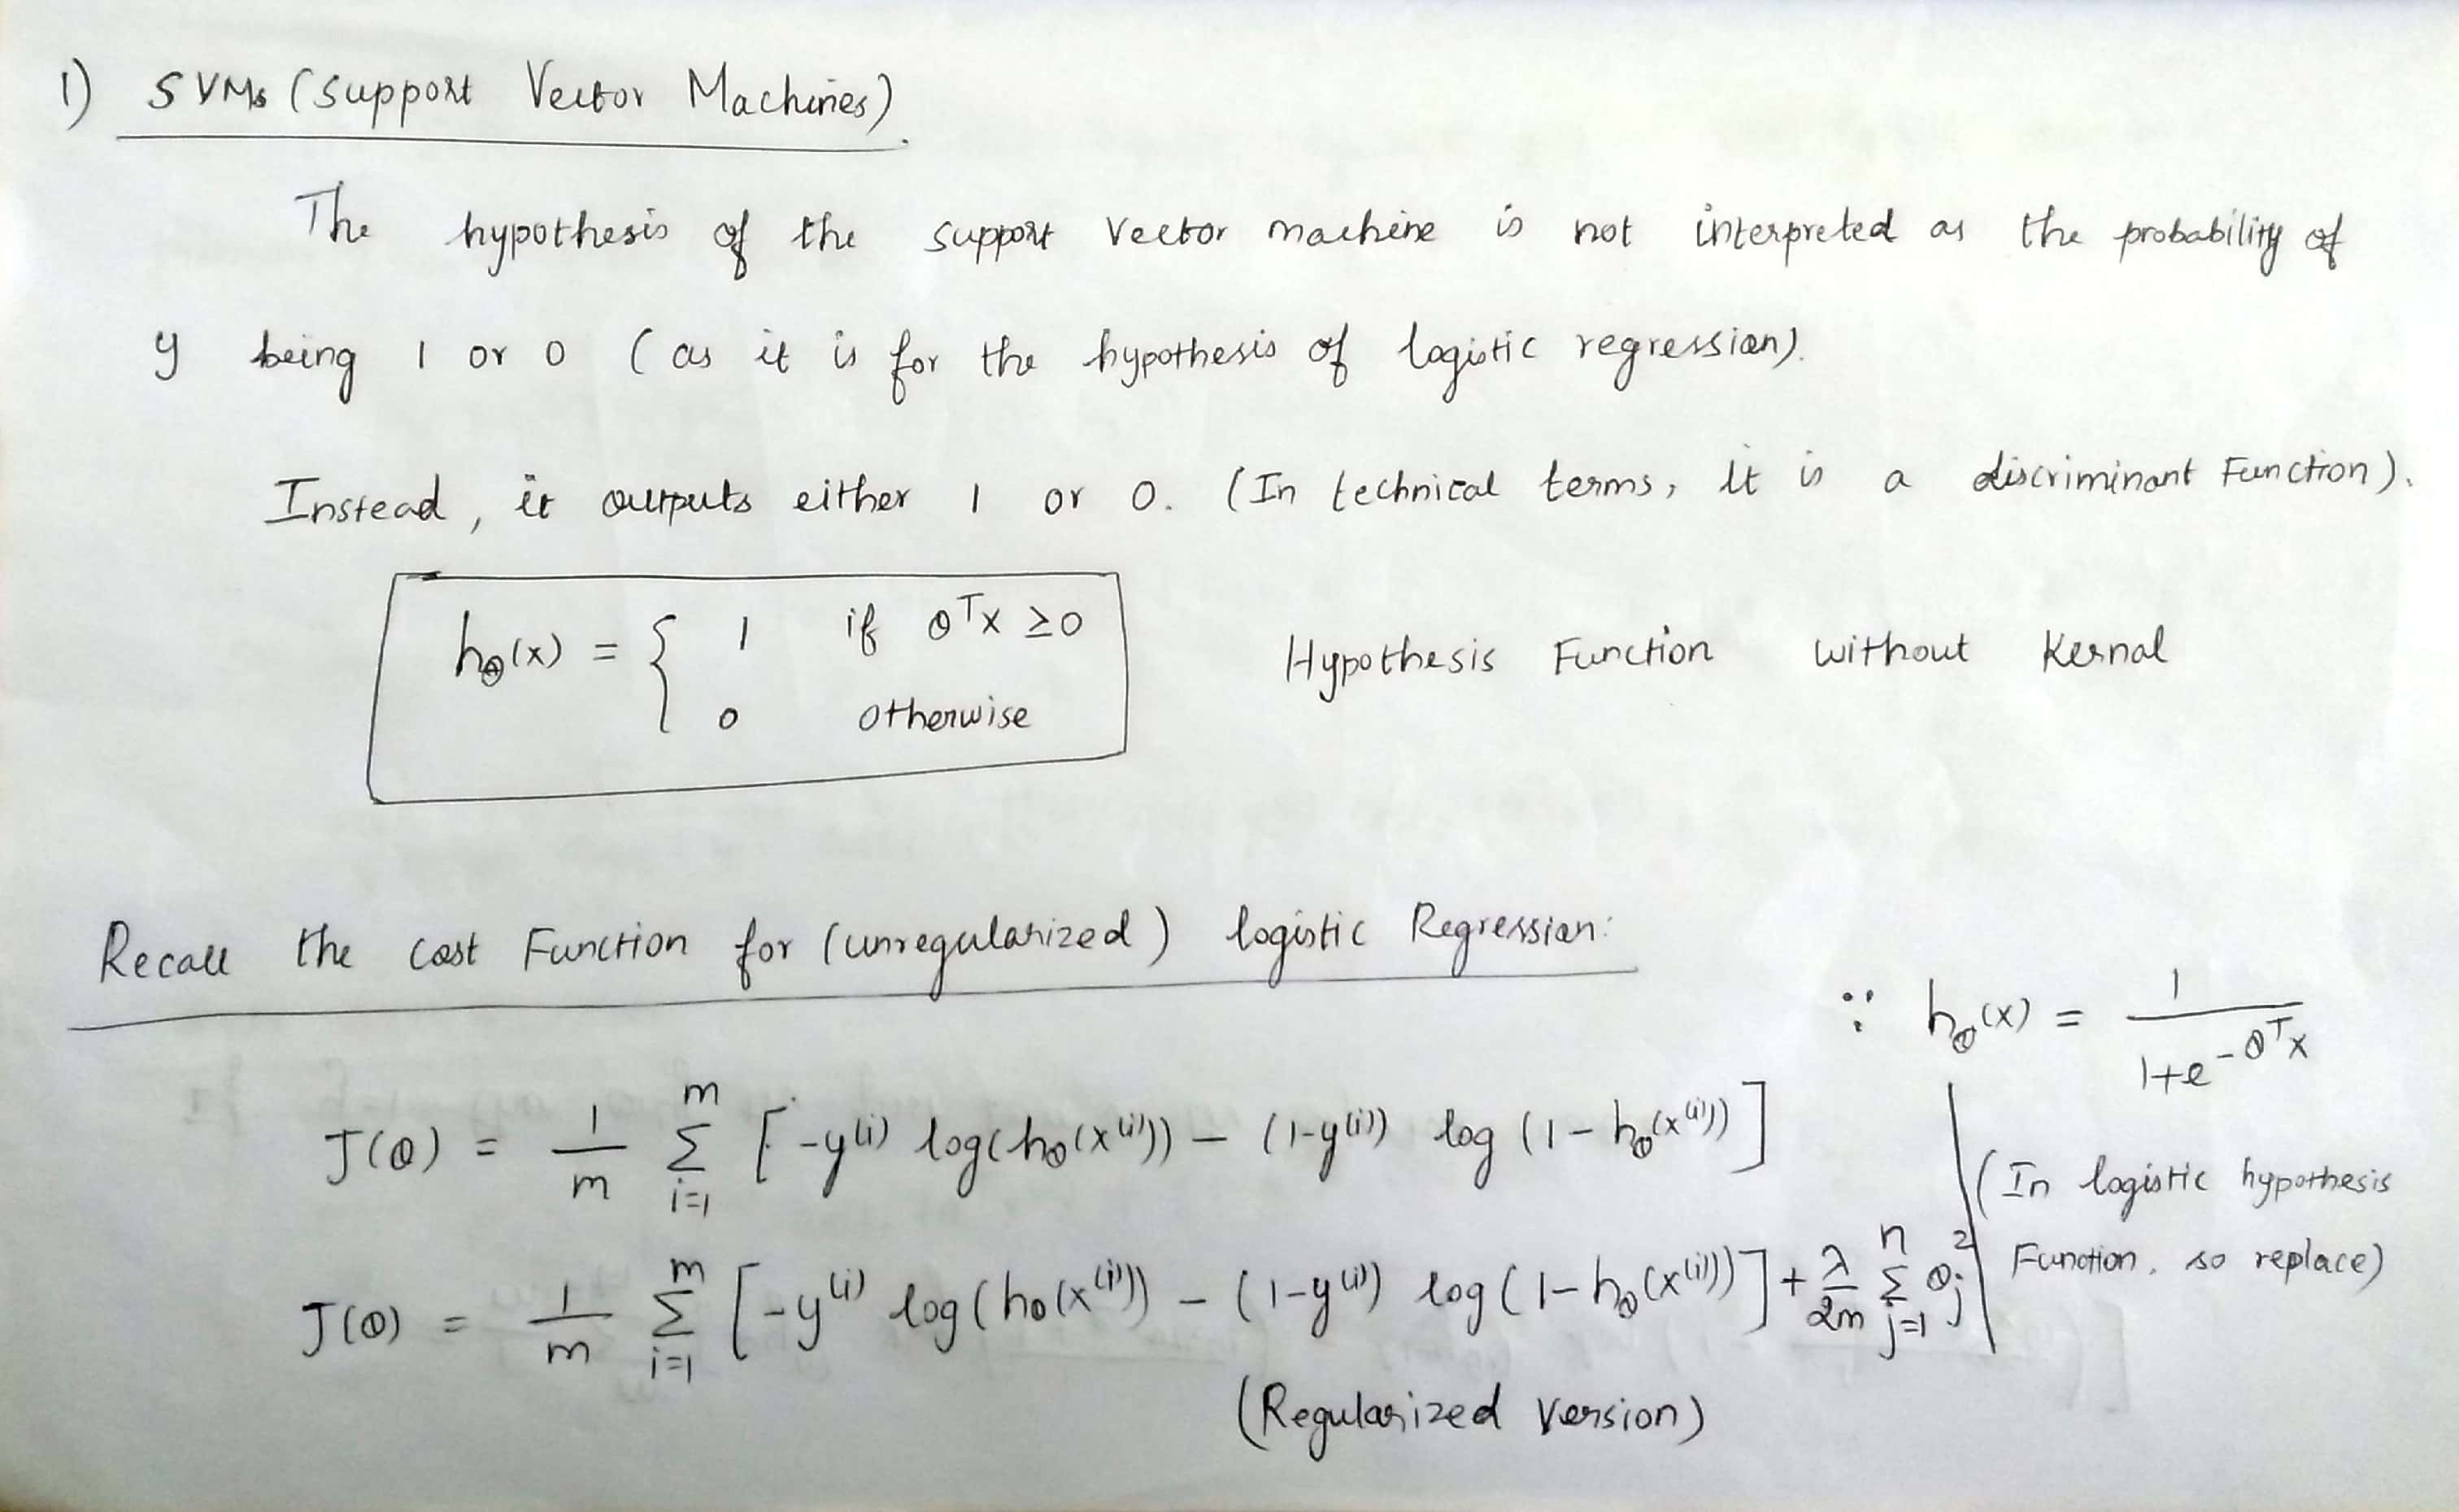 1) SVMs (Support Vector Machines).
The hypothesis of the support vector machine is not interpreted as the probability of
y being 1 or 0 (as it is for the hypothesis of logistic regression).
Instead, it outputs either 1 or 0. (In technical terms, it is a discriminant Function).
h_θ(x) = { 1 if θ^T x ≥ 0
0 otherwise
Hypothesis Function without Kernal
Recall the cost Function for (unregularized) logistic Regression:
∵ h_θ(x) = 1 / (1+e^{-θ^T x})
J(θ) = 1/m Σ_{i=1}^{m} [-y^{(i)} log(h_θ(x^{(i)})) - (1-y^{(i)}) log (1 - h_θ(x^{(i)}))]
(In logistic hypothesis
Function, so replace)
J(θ) = 1/m Σ_{i=1}^{m} [-y^{(i)} log(h_θ(x^{(i)})) - (1-y^{(i)}) log(1-h_θ(x^{(i)}))] + λ/2m Σ_{j=1}^{n} θ_j^2
(Regularized Version)